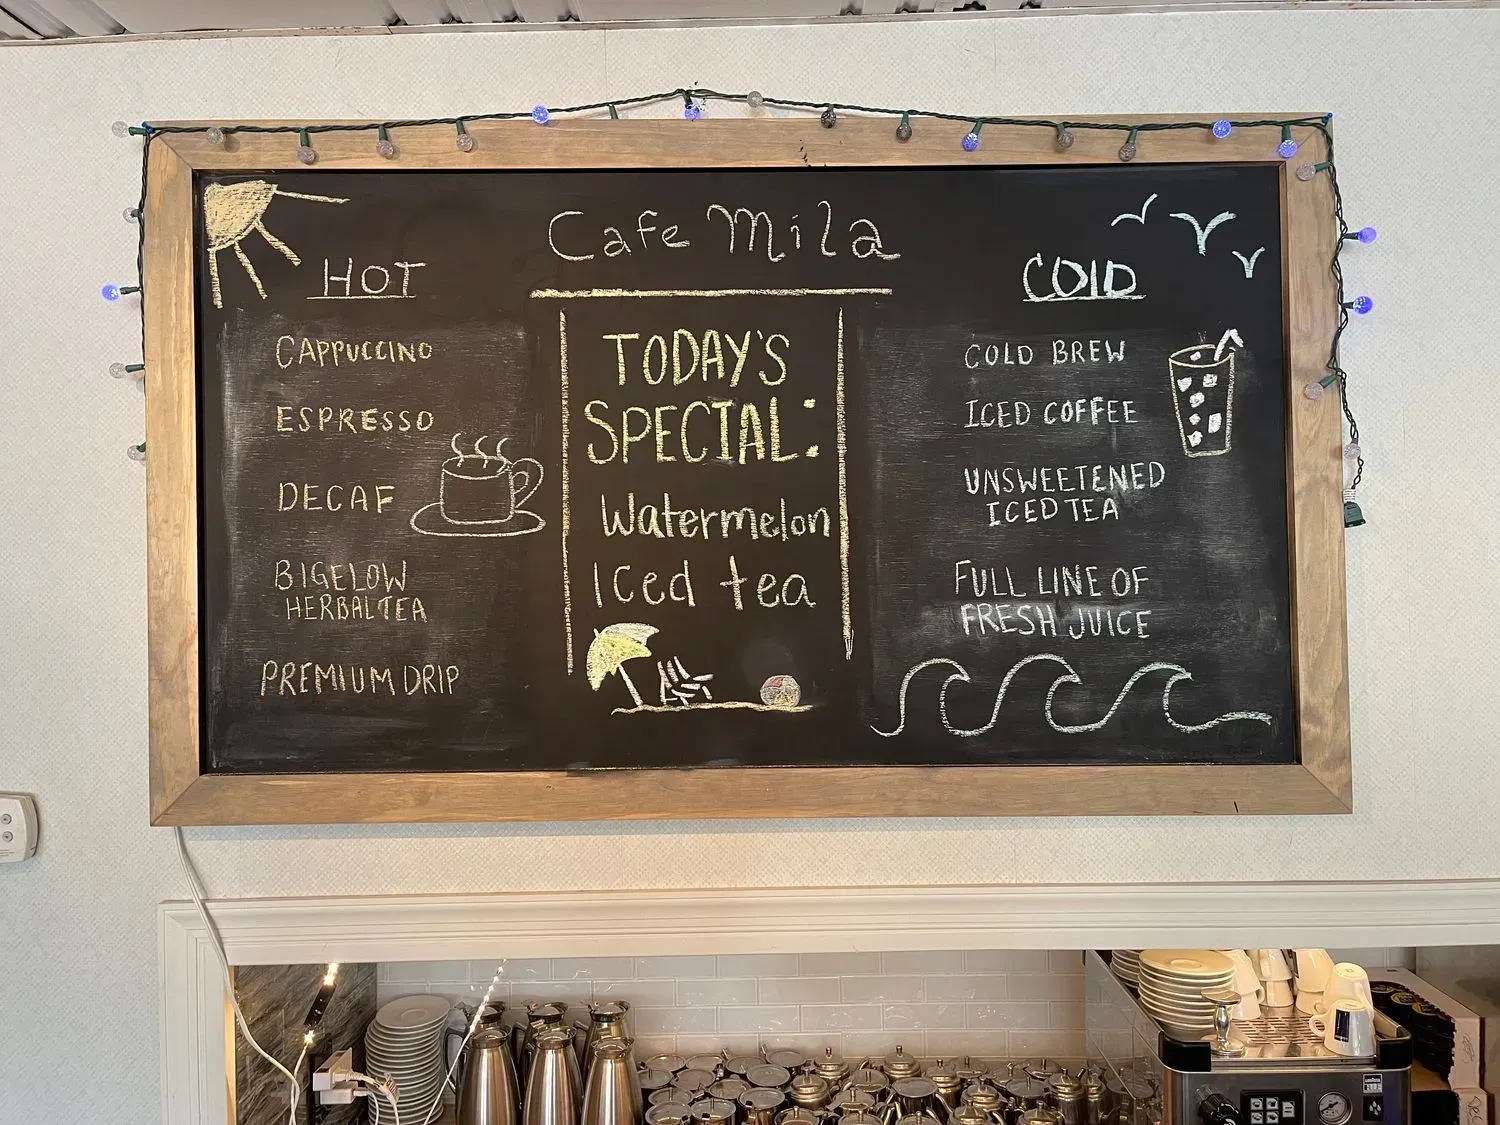 Cafe Mila
HOT
CAPPUCCINO
ESPRESSO
DECAF
BIGELOW
HERBAL TEA
PREMIUM DRIP
TODAY'S
SPECIAL:
Watermelon
Iced tea
COLD
COLD BREW
ICED COFFEE
UNSWEETENED
ICED TEA
FULL LINE OF
FRESH JUICE